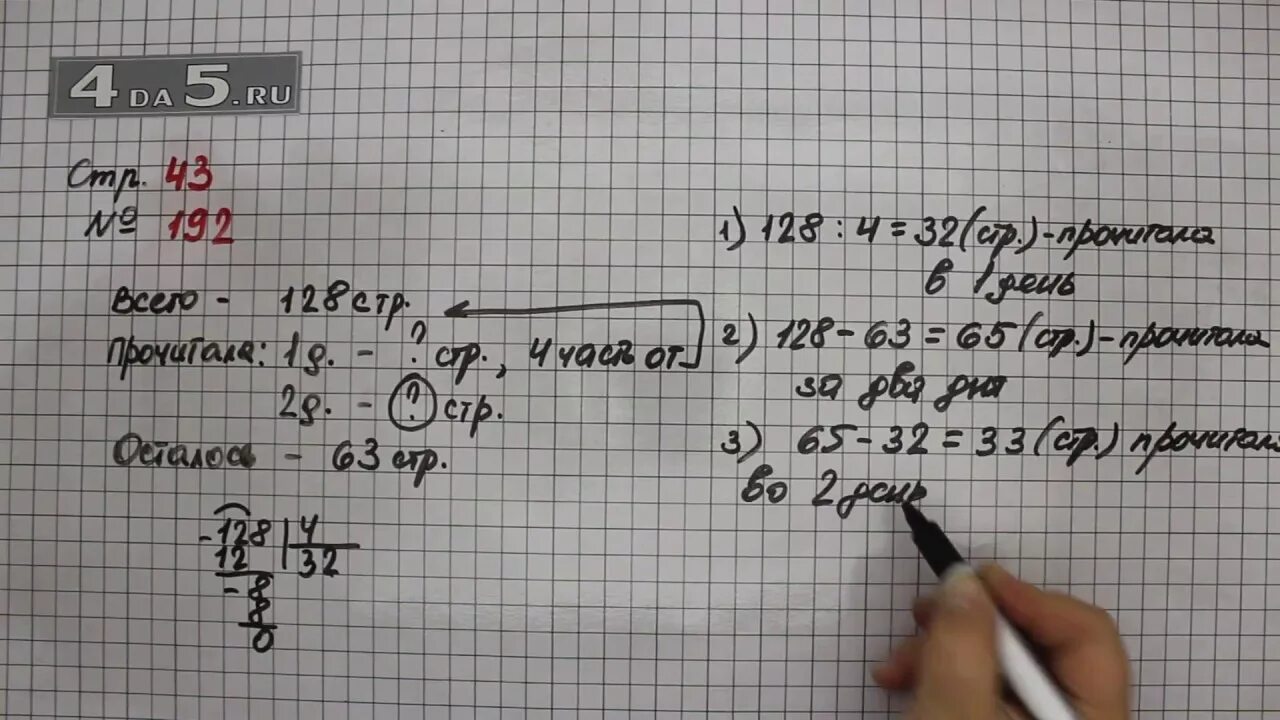 4 DA 5.RU
Стр. 43
№ 192
Всего - 128 стр.
Прочитала: 1 д. - ? стр., 4 часть от
2 д. - ? стр.
Осталось - 63 стр.
- 128 4
12 32
- 8
8
0
1) 128 : 4 = 32 (стр.) - прочитала
в 1 день
2) 128 - 63 = 65 (стр.) - прочитала
за два дня
3) 65 - 32 = 33 (стр.) прочитала
во 2 день